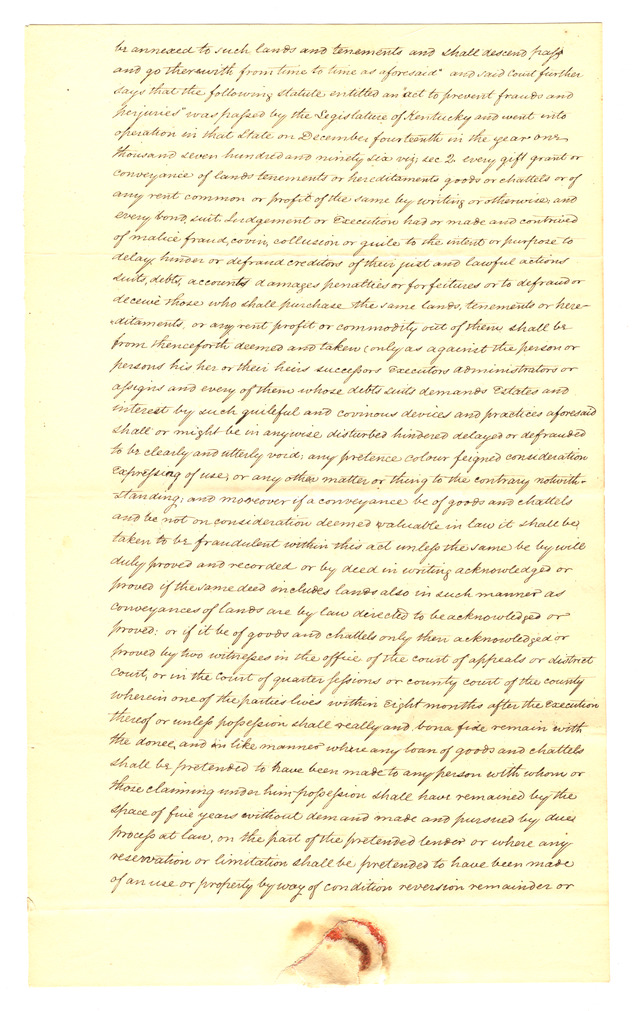 be annexed to such lands and tenements and shall descend pass
and go therewith from time to time as aforesaid" and said Court further
says that the following statute entitled an "act to prevent frauds and
perjuries" was passed by the Legislature of Kentucky and went into
operation in that State on December fourteenth in the year one
thousand seven hundred and ninety six viz; sec 2. every gift grant or
conveyance of lands tenements or hereditaments goods or chattels or of
any rent common or profit of the same by writing or otherwise, and
every bond, suit, Judgement or Execution had or made and contrived
of malice fraud, covin, collusion or guile to the intent or purpose to
delay hinder or defraud creditors of their just and lawful actions
suits, debts, accounts damages penalties or forfeitures or to defraud or
deceive those who shall purchase the same lands, tenements or here-
ditaments, or any rent profit or commodity out of them, shall be
from thenceforth deemed and taken (only as against the person or
persons his her or their heirs successors Executors administrators or
assigns and every of them whose debts suits demands Estates and
interest by such guileful and covinous devices and practices aforesaid
shall or might be in anywise disturbed hindered delayed or defrauded
to be clearly and utterly void; any pretence colour feigned consideration
expressing of use, or any other matter or thing to the contrary notwith-
standing; and moreover if a conveyance be of goods and chattels
and be not on consideration deemed valuable in law it shall be
taken to be fraudulent within this act unless the same be by will
duly proved and recorded or by deed in writing acknowledged or
proved if the same deed includes lands also in such manner as
conveyances of lands are by law directed to be acknowledged or
proved: or if it be of goods and chattels only then acknowledged or
proved by two witnesses in the office of the court of appeals or district
court, or in the court of quarter sessions or county court of the county
wherein one of the parties lives within eight months after the execution
thereof or unless possession shall really and bona fide remain with
the donee, and in like manner where any loan of goods and chattels
shall be pretended to have been made to any person with whom or
those claiming under him possession shall have remained by the
space of five years without demand made and pursued by due
process at law, on the part of the pretended lender or where any
reservation or limitation shall be pretended to have been made
of an use or property by way of condition reversion remainder or